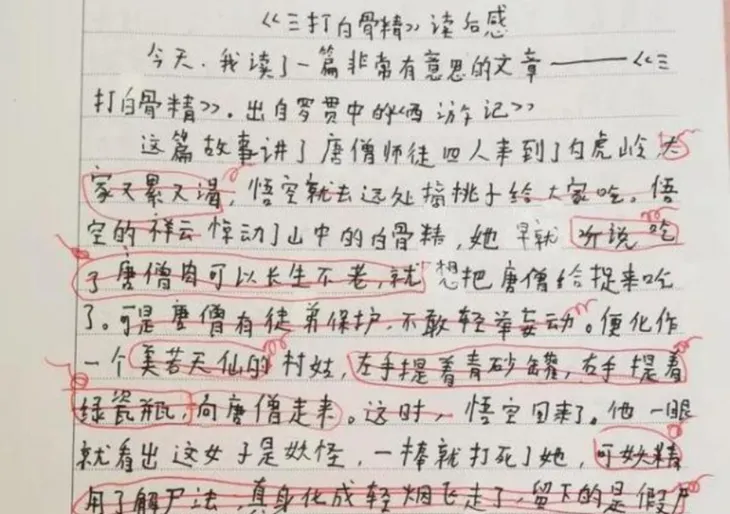 《三打白骨精》读后感
今天，我读了一篇非常有意思的文章——《三
打白骨精》。出自罗贯中的《西游记》
这篇故事讲了唐僧师徒四人来到了白虎岭，大
家又累又渴，悟空就去远处摘桃子给大家吃。悟
空的祥云惊动了山中的白骨精，她早就听说吃
了唐僧肉可以长生不老，就想把唐僧给捉来吃
了。可是唐僧有徒弟保护，不敢轻举妄动。便化作
一个美若天仙的村姑，左手提着青砂罐，右手提着
绿瓷瓶，向唐僧走来。这时，悟空回来了。他一眼
就看出这女子是妖怪，一棒就打死了她，可妖精
用了解尸法，真身化成轻烟飞走了，留下的是假尸